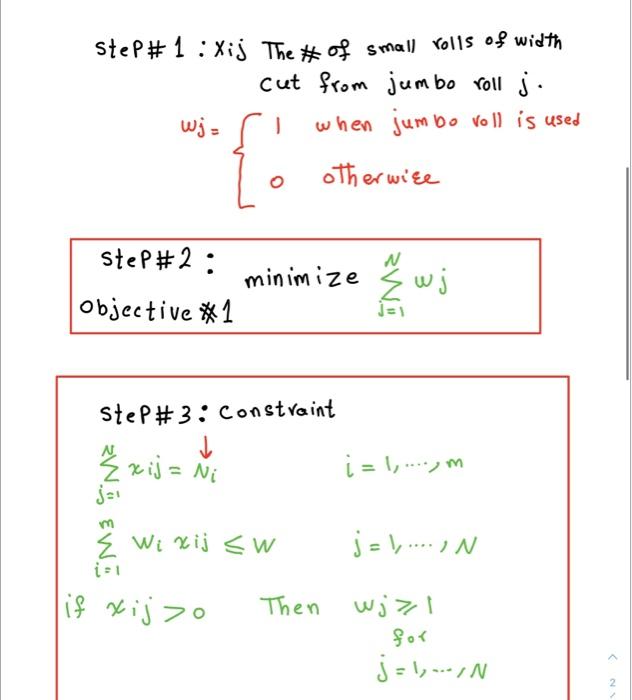 Step# 1 : Xij The # of small rolls of width
cut from jumbo roll j.
wj = { 1 when jumbo roll is used
0 otherwise
Step#2 :
minimize N Σ j=1 wj
Objective #1
Step#3 : Constraint
↓
N Σ j=1 xij = Ni i = 1,....,m
m Σ i=1 wi xij ≤ W j = 1,....,N
if xij > 0 Then wj ≥ 1
for
j = 1,...,N
2